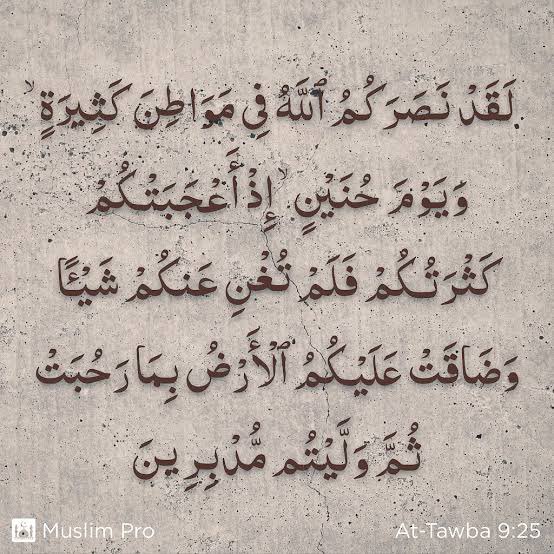 لَقَدْ نَصَرَكُمُ ٱللَّهُ فِي مَوَاطِنَ كَثِيرَةٍ ۙ
وَيَوْمَ حُنَيْنٍ ۙ إِذْ أَعْجَبَتْكُمْ
كَثْرَتُكُمْ فَلَمْ تُغْنِ عَنكُمْ شَيْـًٔا
وَضَاقَتْ عَلَيْكُمُ ٱلْأَرْضُ بِمَا رَحُبَتْ
ثُمَّ وَلَّيْتُم مُّدْبِرِينَ
Muslim Pro At-Tawba 9:25